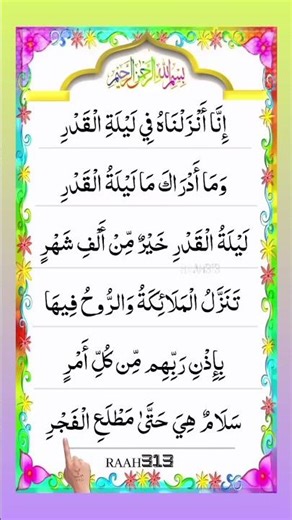 بسم الله الرحمن الرحيم
إِنَّا أَنْزَلْنَاهُ فِي لَيْلَةِ الْقَدْرِ
وَمَا أَدْرَاكَ مَا لَيْلَةُ الْقَدْرِ
لَيْلَةُ الْقَدْرِ خَيْرٌ مِّنْ أَلْفِ شَهْرٍ
تَنَزَّلُ الْمَلَائِكَةُ وَالرُّوحُ فِيهَا
بِإِذْنِ رَبِّهِم مِّن كُلِّ أَمْرٍ
سَلَامٌ هِيَ حَتَّىٰ مَطْلَعِ الْفَجْرِ
RAAH313